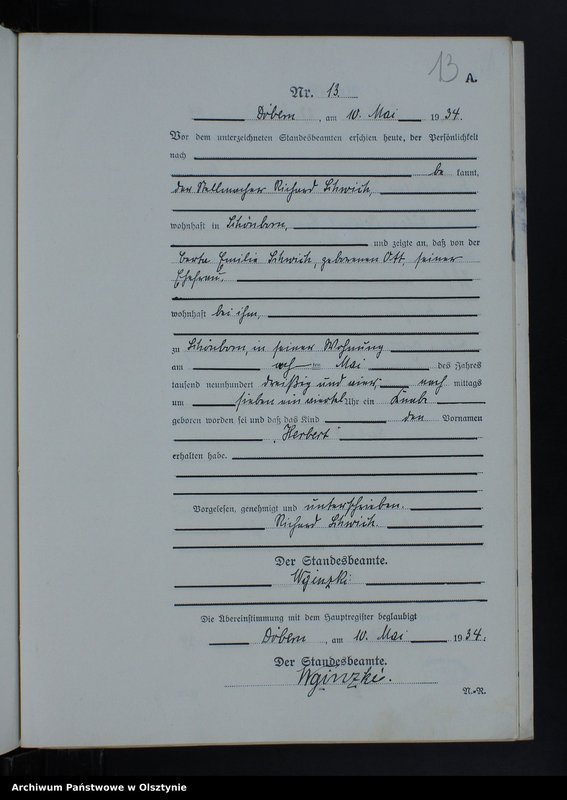 13
A.
Nr. 13.
Döbern, am 10. Mai 1934.
Vor dem unterzeichneten Standesbeamten erschien heute, der Persönlichkeit
nach
be kannt,
der Stellmacher Richard
wohnhaft in Schönborn,
und zeigte an, daß von der
Berta Emilie, geborenen Ott, seiner
Ehefrau,
wohnhaft bei ihm,
zu Schönborn, in seiner Wohnung
am ten Mai des Jahres
tausend neunhundert dreißig und vier nach mittags
um sieben ein viertel Uhr ein Knabe
geboren worden sei und daß das Kind den Vornamen
„Herbert“
erhalten habe.
Vorgelesen, genehmigt und unterschrieben.
Richard
Der Standesbeamte.
Die Übereinstimmung mit dem Hauptregister beglaubigt
Döbern, am 10. Mai 1934.
Der Standesbeamte.
N.-R.
Archiwum Państwowe w Olsztynie